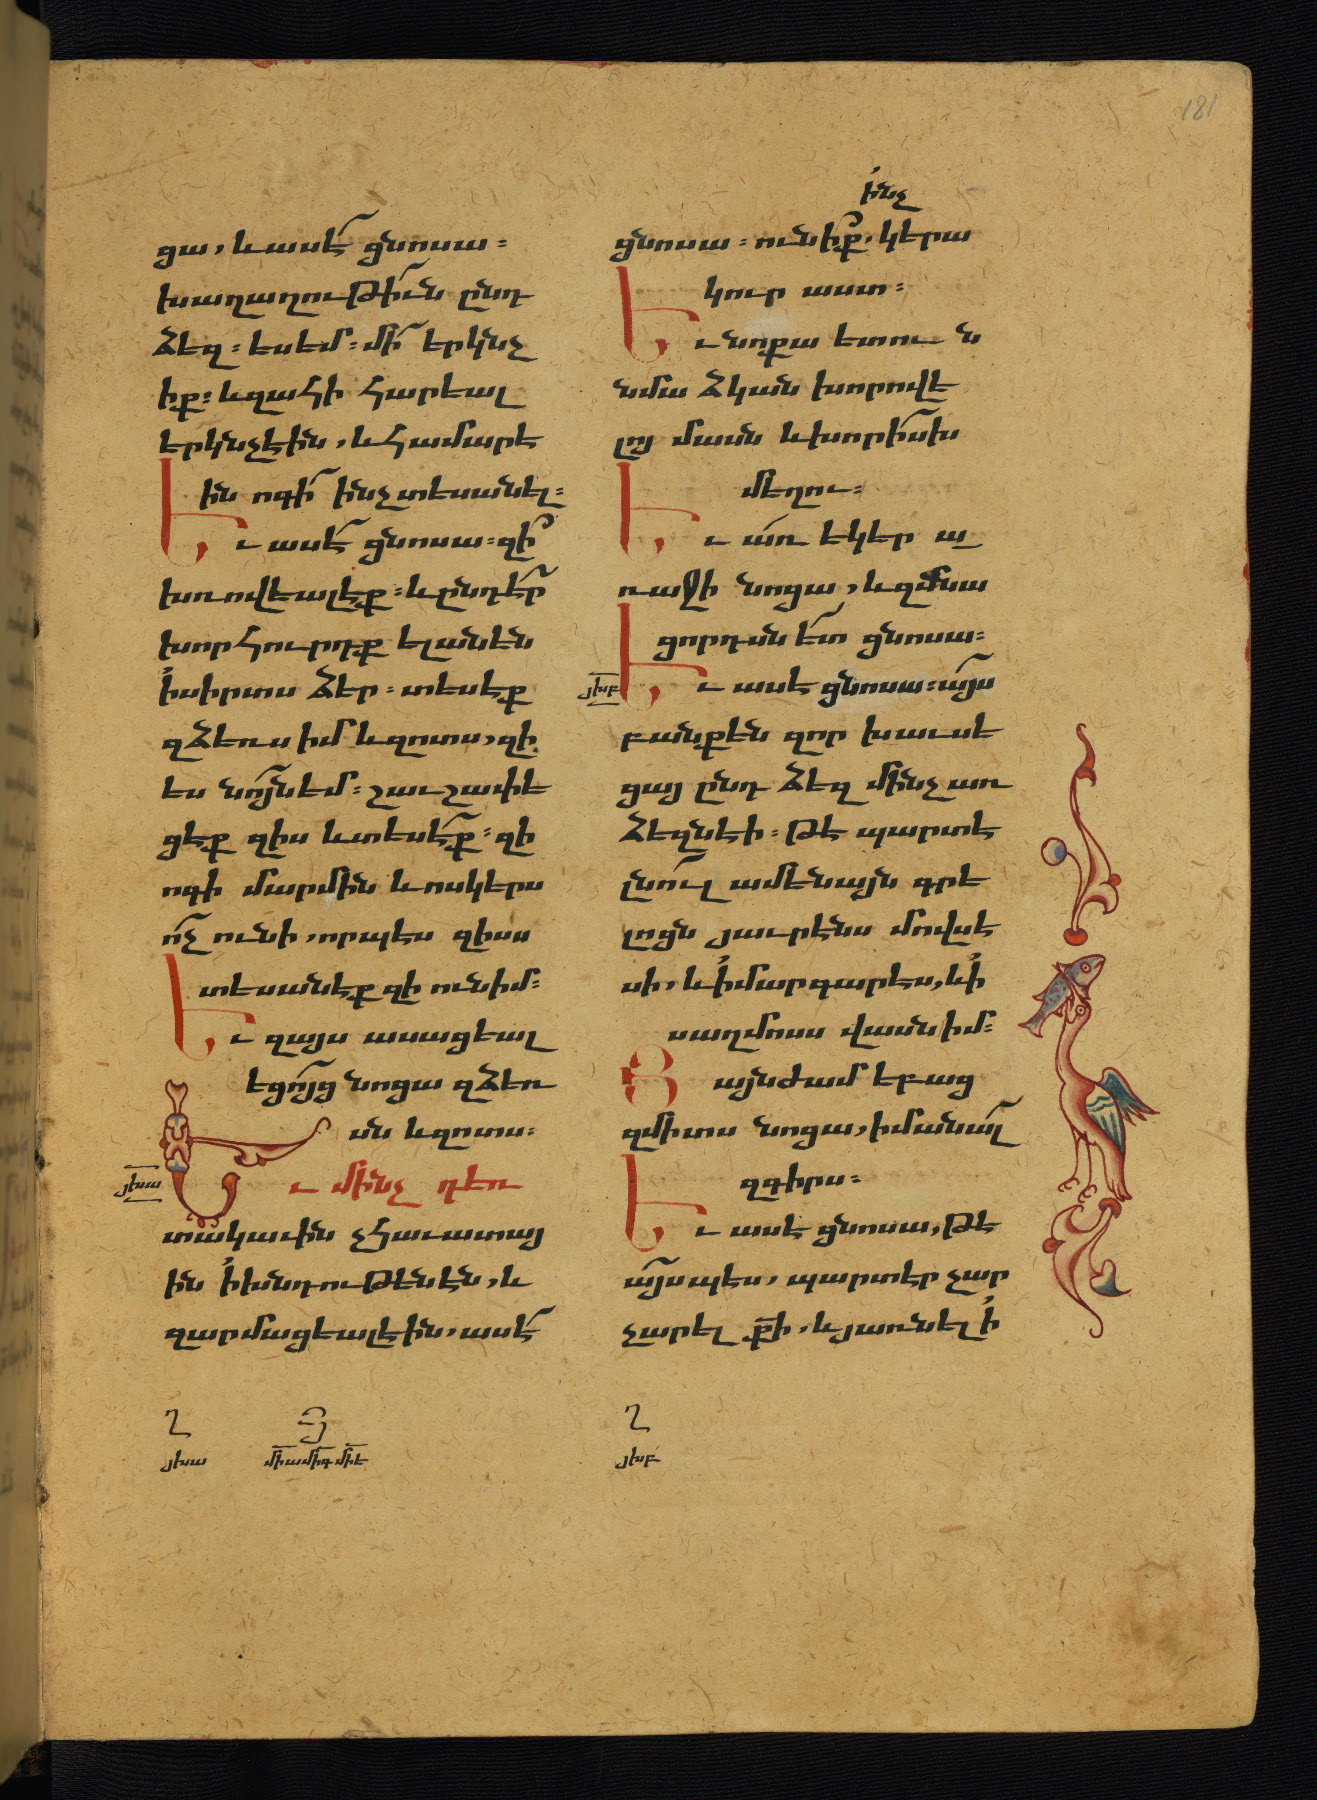 181
ցա, և ասէ ցնոսա։
խաղաղութիւն ընդ
ձեզ։ ես եմ։ մի երկնչ
իք։ և զահի հարեալ
երկնչէին, և համարէ
ին ոգի ինչ տեսանել։
Եւ ասէ ցնոսա։ զի՞
խռովեալէք։ և ընդէ՞ր
խորհուրդք ելանեն
ի սիրտս ձեր։ տեսէք
զձեռս իմ և զոտս, զի
ես նոյն եմ։ շաւշափե
ցէք զիս և տեսէք։ զի
ոգի մարմին և ոսկերս
ոչ ունի, որպէս զիսս
տեսանէք զի ունիմ։
Եւ զայս ասացեալ
եցոյց նոցա զձեռ
սն և զոտս։
յխա
Եւ մինչ դեռ
տակաւին չհաւատայ
ին ի խնդութենէն, և
զարմացեալ էին, ասէ
ինչ
ցնոսա։ ունի՞ք, կերա
կուր աստ։
Եւ նոքա ետուն
նմա ձկան խորովե
լոյ մասն և խորիսխ
մեղու։
Եւ առ եկեր ա
ռաջի նոցա, և զմնա
ցորդսն ետ ցնոսա։
յխբ
Եւ ասէ ցնոսա։ այս
բանք են զոր խաւսե
ցայ ընդ ձեզ մինչ առ
ձեզն էի։ թէ պարտ է
լնուլ ամենայն գրե
լոցն յաւրէնս մովսե
սի, և ի մարգարէս, և ի
սաղմոսս վասն իմ։
Յայնժամ եբաց
զմիտս նոցա, իմանալ
զգիրս։
Եւ ասէ ցնոսա, թէ
այսպէս, պարտ էր չար
չարել քի, և յառնել ի
յխա
մի ա մի գ մի է
յխբ